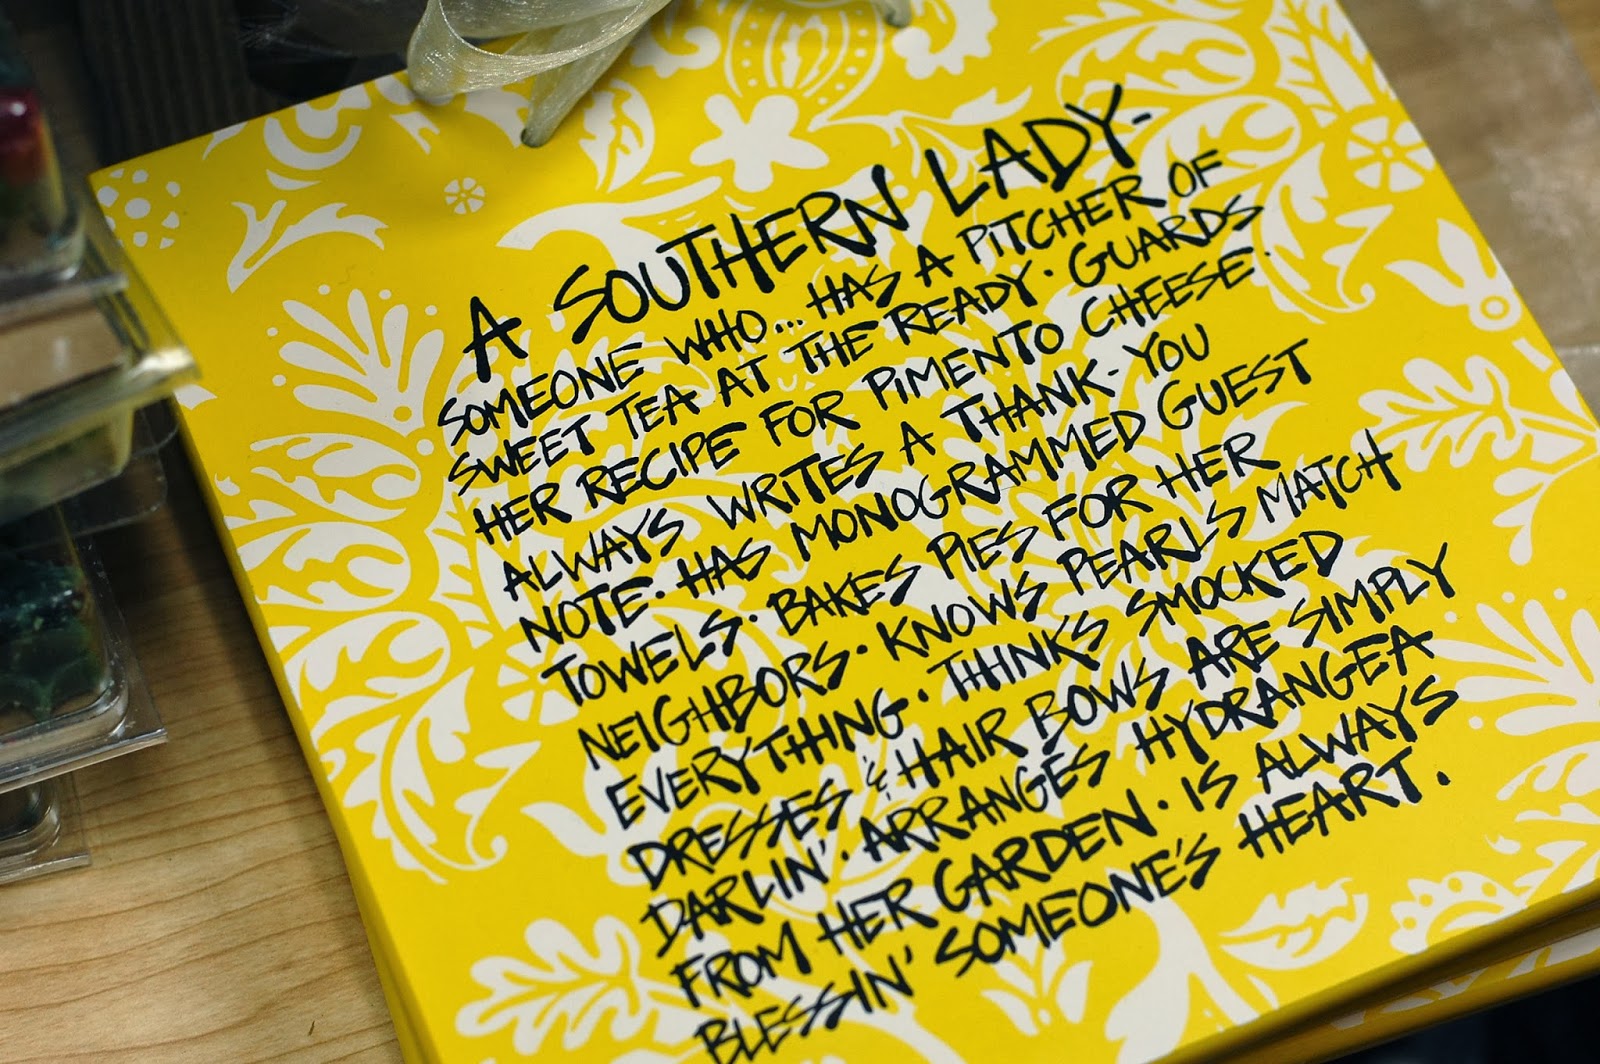 A SOUTHERN LADY-
SOMEONE WHO... HAS A PITCHER OF
SWEET TEA AT THE READY · GUARDS
HER RECIPE FOR PIMENTO CHEESE ·
ALWAYS WRITES A THANK-YOU
NOTE · HAS MONOGRAMMED GUEST
TOWELS · BAKES PIES FOR HER
NEIGHBORS · KNOWS PEARLS MATCH
EVERYTHING · THINKS SMOCKED
DRESSES & HAIR BOWS ARE SIMPLY
DARLIN' · ARRANGES HYDRANGEA
FROM HER GARDEN · IS ALWAYS
BLESSIN' SOMEONE'S HEART.